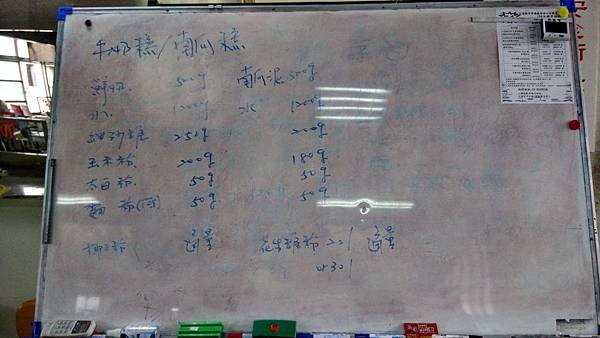 牛奶糕/南瓜糕
鮮奶 500g 南瓜泥 500g
水 1200g 水 1200g
細砂糖 250g 200g
玉米粉 200g 180g
太白粉 50g 50g
麵粉(低) 50g 50g
椰子粉 適量 花生糖粉 2:1 適量
or 3:1